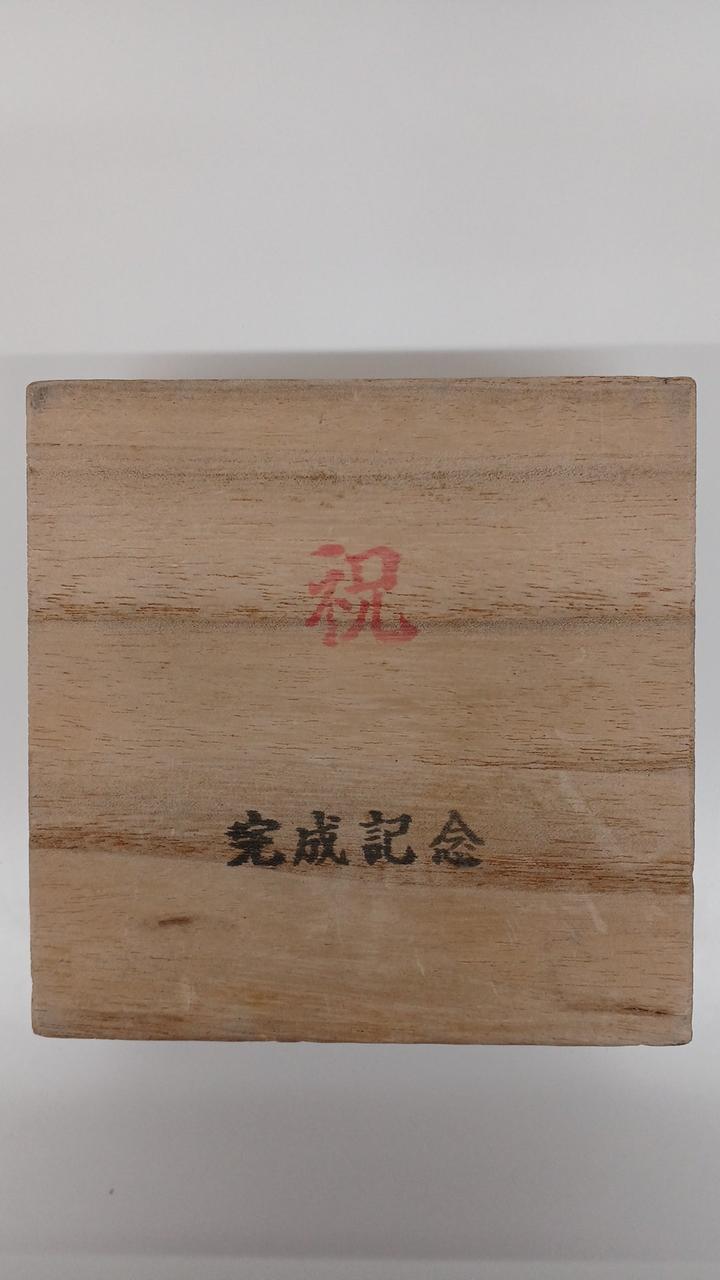 祝
完成記念